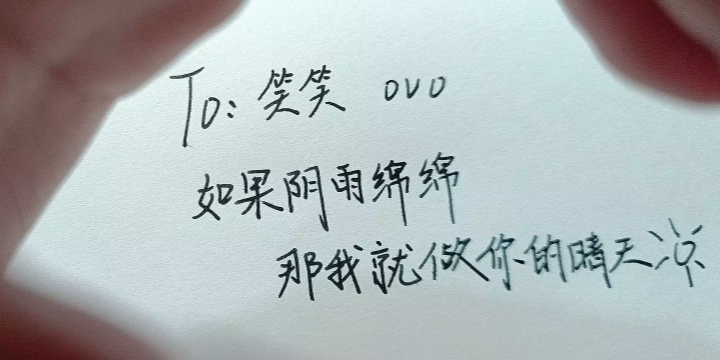 To: 笑笑 OVO
如果阴雨绵绵
那我就做你的晴天